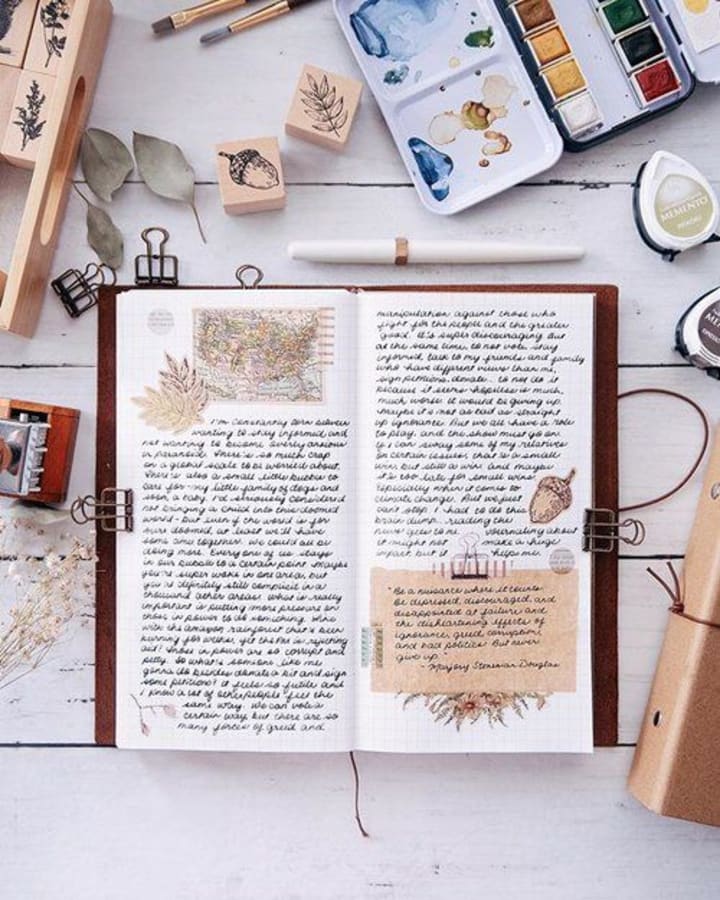 I'm constantly torn between
wanting to stay informed, and
not wanting to become overly anxious
or paranoid. There's so much crap
on a global scale to be worried about.
There's also a small little bubble to
care for - my little family of dogs and
soon, a baby. I'd seriously considered
not bringing a child into this doomed
world - but even if the world is for
sure doomed, at least we'll have
some time together. We could all be
doing more. Everyone of us stays
in our bubble to a certain point. Maybe
you're super woke in one area, but
you're definitely still complicit in a
thousand other areas. What is really
important is putting more pressure on
those in power to do something. Who
with the amazon rainforest that's been
burning for weeks, yet the
aid? Those in power are so corrupt and
petty. So what's someone like me
gonna do besides donate a bit and sign
some petitions? It feels so futile and
I know a lot of other people feel the
same way. We can vote a
certain way but there are so
many forces of greed and
manipulation against those who
fight for the people and the greater
good. It's super discouraging but
at the same time, to not vote, stay
informed, talk to my friends and family
who have different views than me,
sign petitions, donate... to not do it
because it seems hopeless is much,
much worse. It would be giving up.
Maybe it's not as bad as straight
up ignorance. But we all have a role
to play, and the show must go on.
If I can sway some of my relatives
on certain issues, that is a small
win but still a win. And maybe
it's too late for small wins,
especially when it comes to
climate change. But we just
can't stop. I had to do this
brain dump... reading the
news gets to me. Journaling about
it might not make a huge
impact but it helps me.
"Be a nuisance where it counts.
Be depressed, discouraged, and
disappointed at failure and
the disheartening effects of
ignorance, greed, corruption,
and bad politics. But never
give up."
- Marjory Stoneman Douglas
MEMENTO